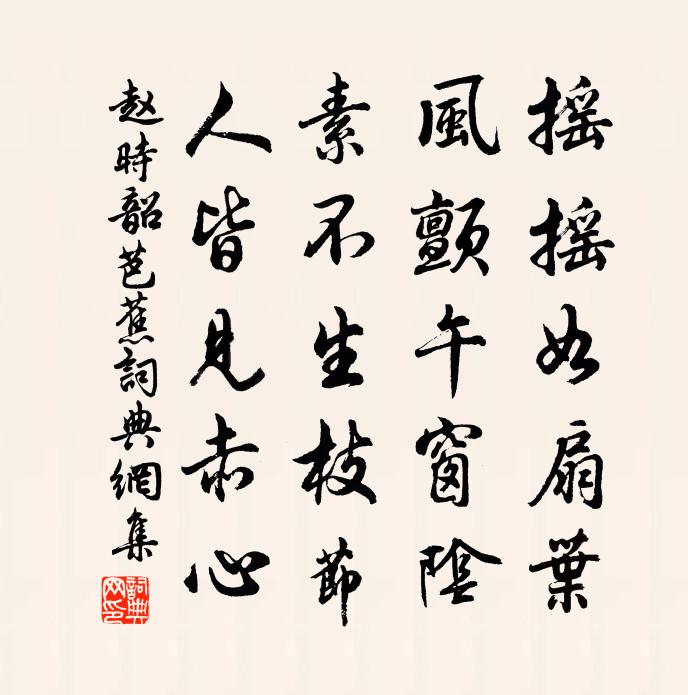 搖搖如扇葉
風顫午窗陰
素不生枝節
人皆見赤心
趙時韶芭蕉詞典網集
詞典網印